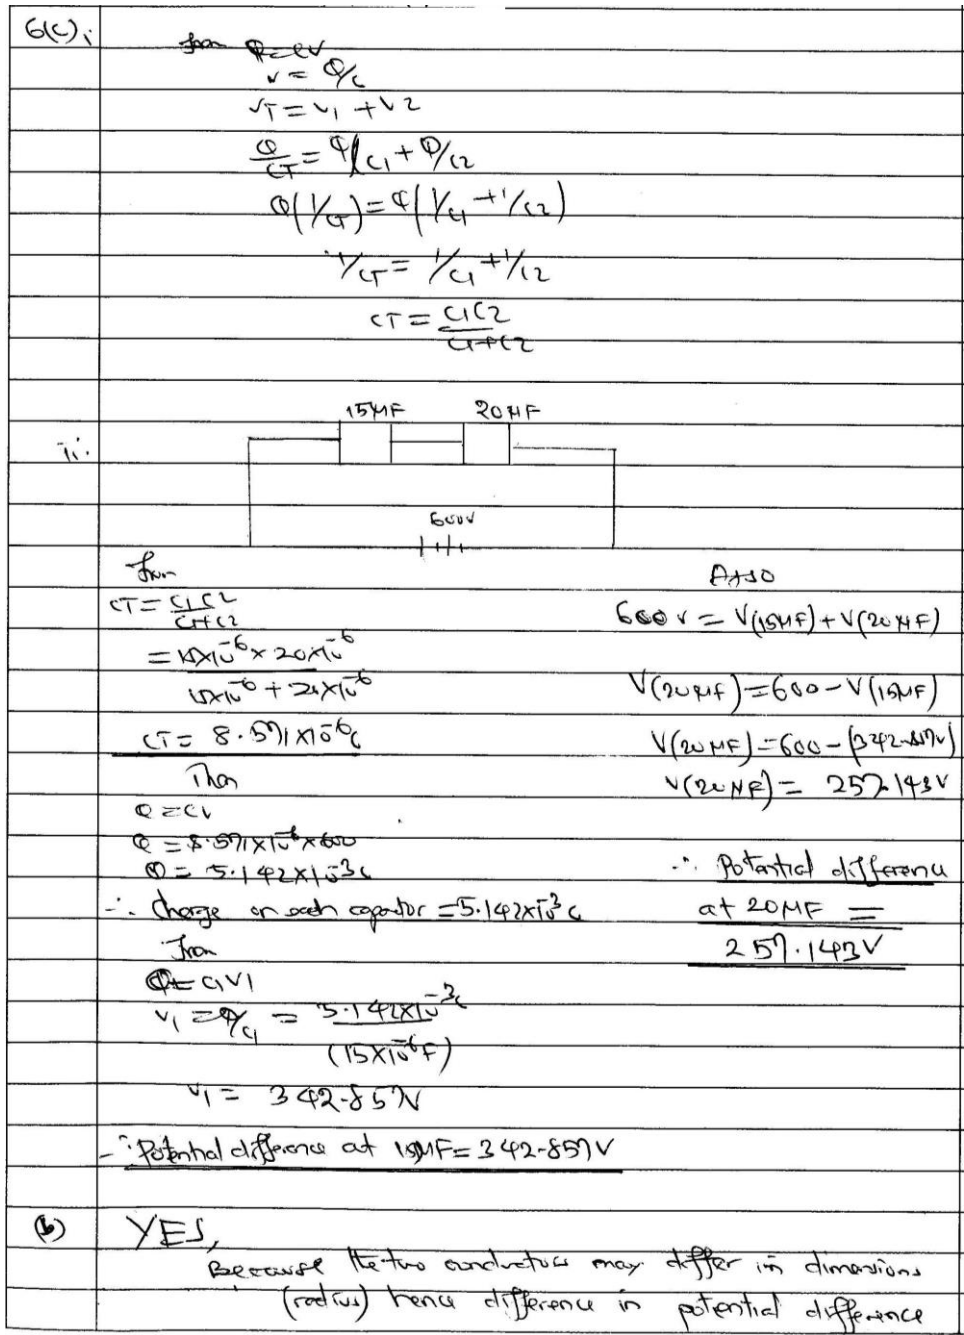 6(c)i
from Q=CV
V = Q/C
VT = V1 + V2
Q/CT = Q/C1 + Q/C2
Q(1/CT) = Q(1/C1 + 1/C2)
1/CT = 1/C1 + 1/C2
CT = C1C2
C1+C2
15μF 20μF
ii.
600V
from
CT = C1C2
C1+C2
= 15×10^-6 × 20×10^-6
15×10^-6 + 20×10^-6
CT = 8.571×10^-6 C
Then
Q = CV
Q = 8.571×10^-6×600
Q = 5.142×10^-3 C
∴ Charge on each capacitor = 5.142×10^-3 C
From
Q = C1V1
V1 = Q/C1 = 5.142×10^-3 C
(15×10^-6 F)
V1 = 342.857V
∴ Potential difference at 15μF = 342.857V
Also
600V = V(15μF) + V(20μF)
V(20μF) = 600 - V(15μF)
V(20μF) = 600 - (342.857V)
V(20μF) = 257.143V
∴ Potential difference
at 20μF =
257.143V
(b) YES,
Because the two conductors may differ in dimensions
(radius) hence difference in potential difference